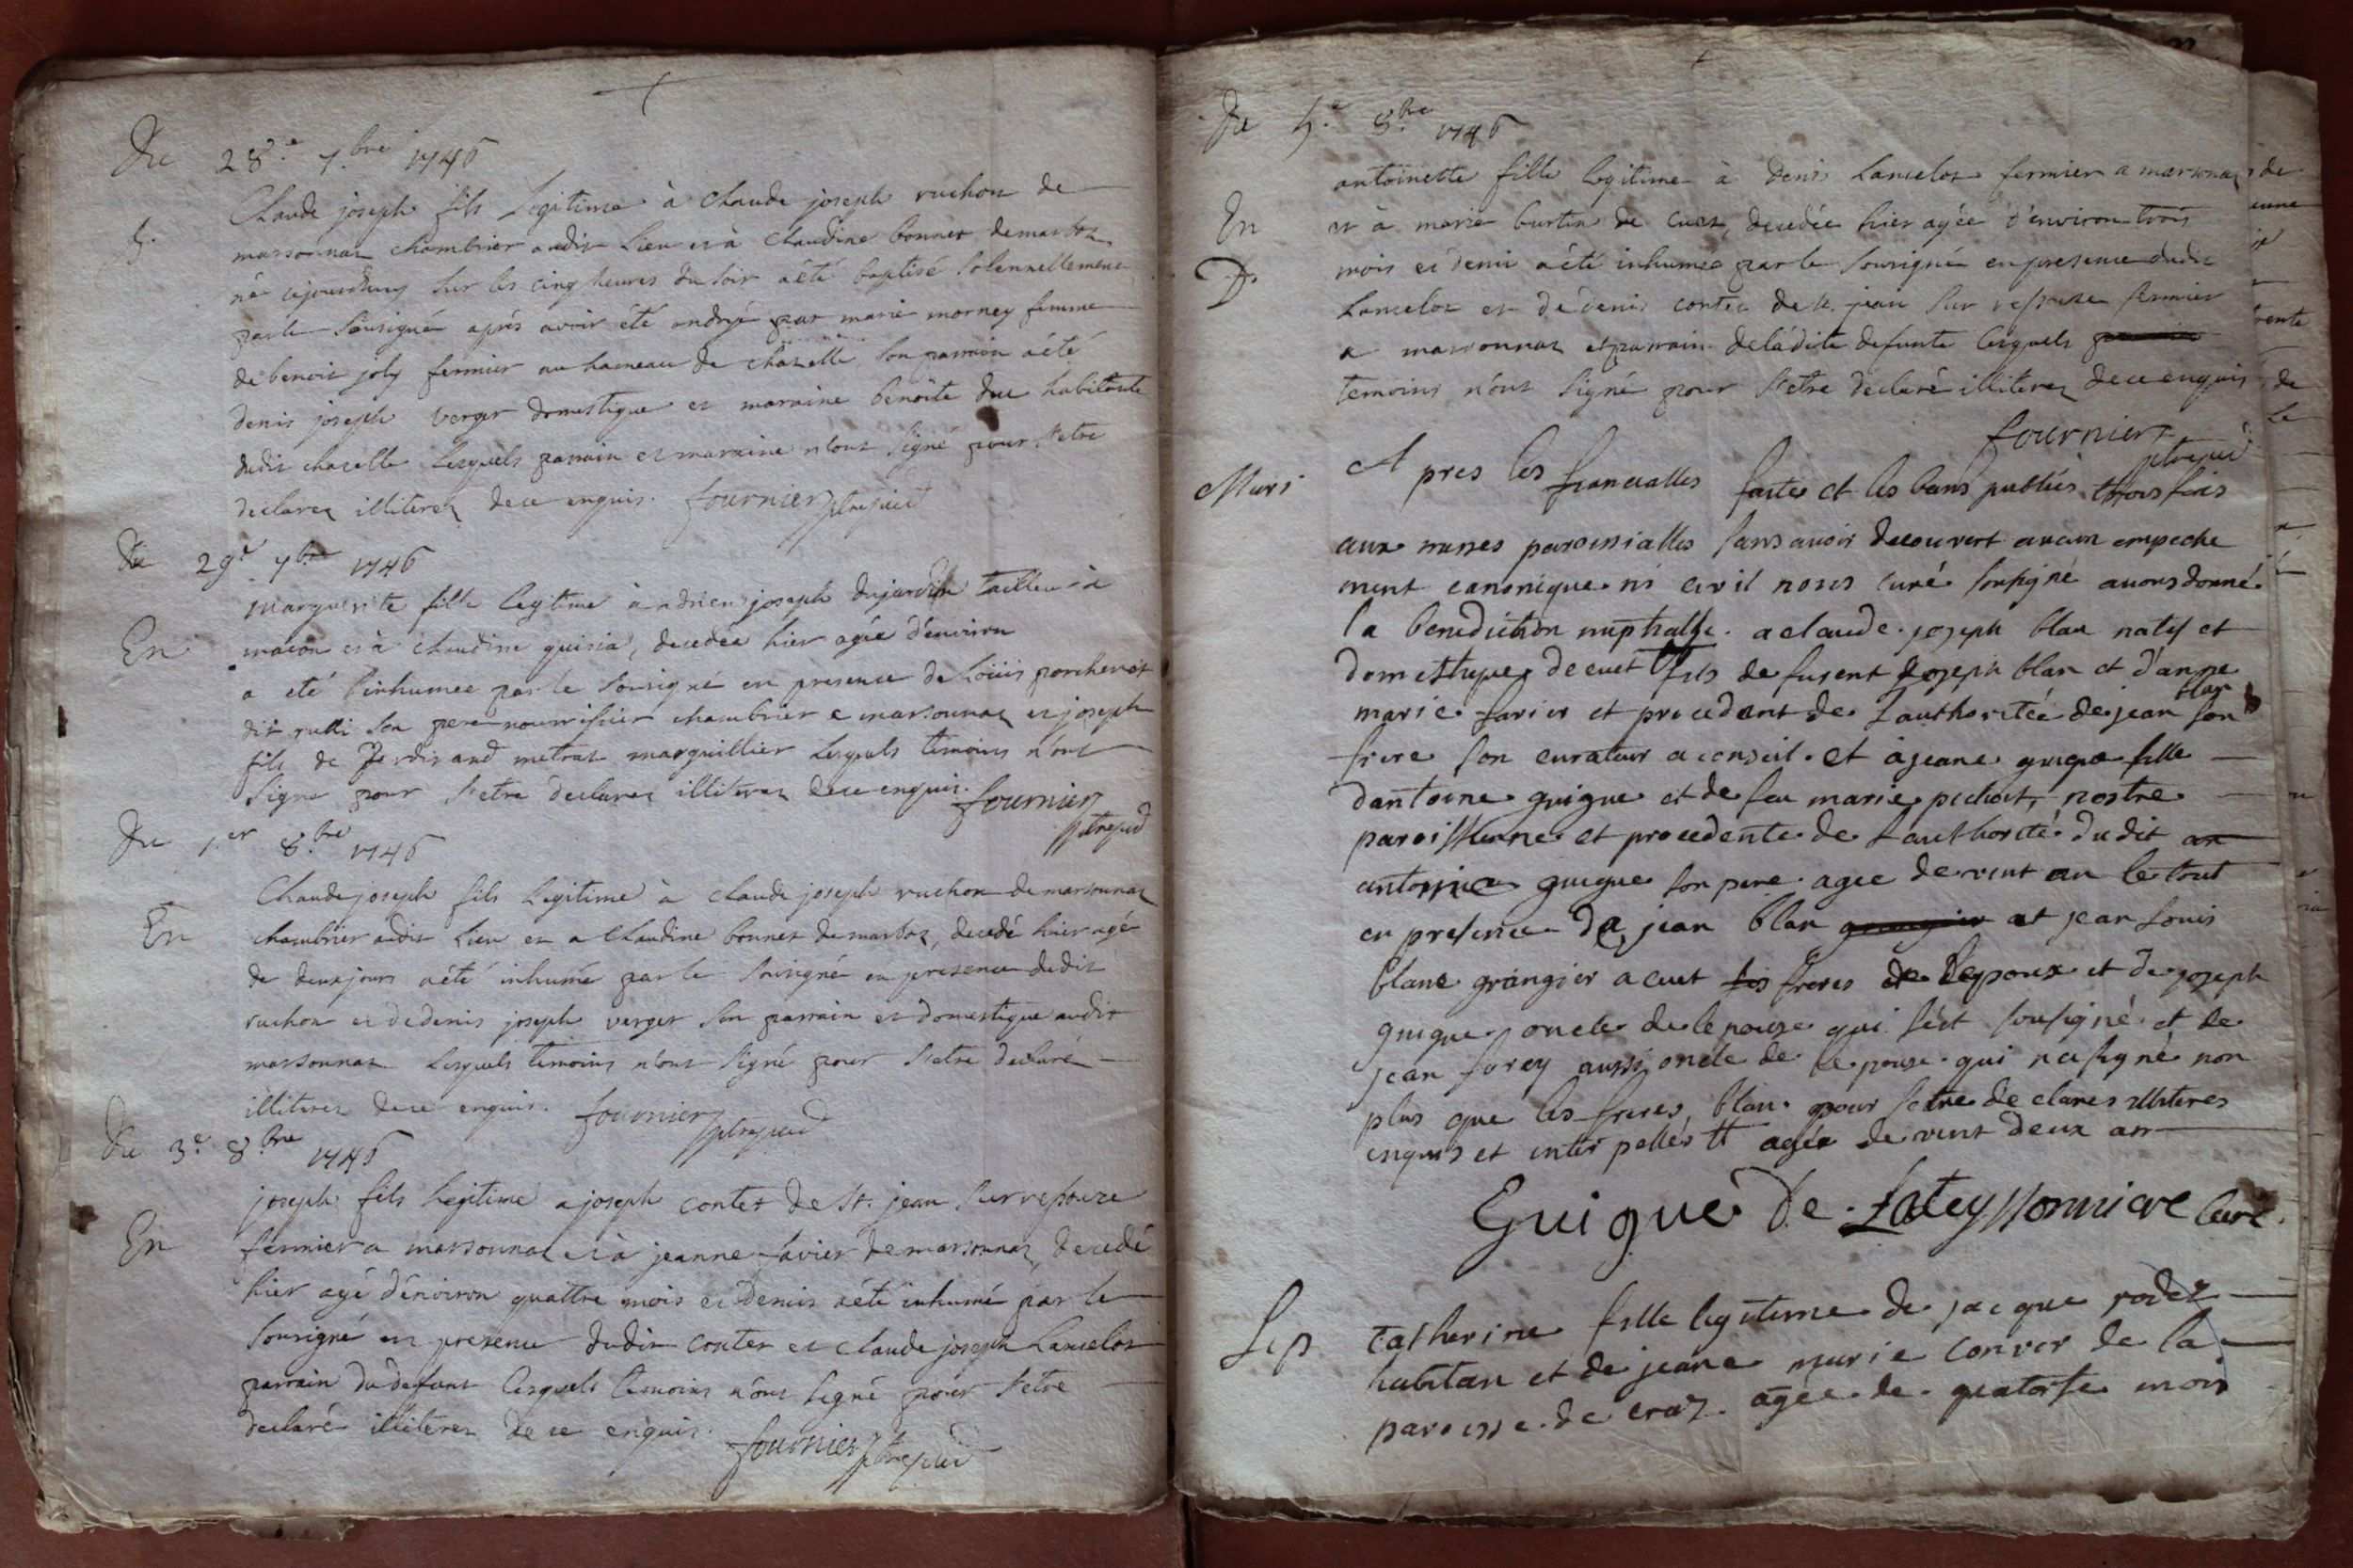 Du 28.e 7.bre 1746
Claude joseph fils Legitime à claude joseph ruchon de
b.
marsonnaz chambrier audit Lieu et à claudine bonnet de marboz
né cejourdhuy sur les cinq heures du soir a été baptisé solennellement
par le sousigné aprés avoir été ondoyé par marie morney femme
de benoit joly fermier au hameau de chazelle son parrain a été
denis joseph verger domestique et maraine benoite duc habitante
dudit chazelle Lesquels parrain et maraine n'ont signé pour s'etre
declarez illiterez de ce enquis. fournier
Du 29.e 7.bre 1746
Marguerite fille legitime à adrien joseph dujardin tailleur à
En
macon et à claudine guiria, decedée hier agée d'environ
a eté inhumee par le sousigné en presence de Loüis porcheret
dit rulli son pere nourrissier chambrier a marsonnaz et joseph
fils de ferdinand metras marguillier Lesquels temoins n'ont
signé pour s'etre declarez illiterez de ce enquis. fournier
Du 1.er 8.bre 1746
Claude joseph fils Legitime à claude joseph ruchon de marsonnaz
En
chambrier audit Lieu et a claudine bonnet de marboz, decedé hier agé
de deux jours a été inhumé par le sousigné en presence dudit
ruchon et de denis joseph verger son parrain et domestique audit
marsonnaz Lesquels temoins n'ont signé pour s'etre declaré
illiterez de ce enquis. fournier
Du 3.e 8.bre 1746
joseph fils legitime a joseph contet de St. jean sur ressouze
En
fermier a marsonnaz et à jeanne favier de marsonnaz, decedé
hier agé d'environ quattre mois et demis a été inhumé par le
sousigné en presence dudit contet et claude joseph Lancelot
parrain du defunt lesquels temoins n'ont signé pour s'etre
declaré illiterez de ce enquis. fournier
Du 5.e 8.bre 1746
antoinette fille legitime à denis Lancelot fermier a marsonnaz
En
et à marie burtin de cuet, decedée hier agée d'environ trois
mois et demi a été inhumée par le sousigné en presence dudit
Lancelot et de denis contet de st. jean sur ressouze fermier
a marsonnaz et parrain de ladite defunte lesquels
temoins n'ont signé pour s'etre declaré illiterez de ce enquis
fournier
Mari
Apres les fiancialles faites et les bans publiés trois fois
aux messes paroissialles sans avoir decouvert aucun empeche
ment canonique ni civil nous curé soussigné avons donné
la benediction nuptialle a claude joseph blan natif et
domestique de cuet fils de fusent joseph blan et d'anne
marie favier et procedant de l'authoritée de jean blan son
frere son curateur a conseil. et à jeane guigue fille
dantoine guigue et de feu marie pichat, nostre
paroissienne et procedente de l'authorité dudit an
antoine guigue son pere agee de vint an le tout
en presence de jean blan et jean louis
blanc grangier a cuet freres de l'epoux et de joseph
guigue oncle de l'epouse qui s'est sousigné et de
jean forey aussi oncle de l'epouse qui n'a signé non
plus que les freres blan pour s'etre declares illiteres
enquis et interpellés tt agée de vint deux an
Guigue de Lateyssonniere Curé
Sep
Catherine fille legitime de jacque rodet
habitan et de jeane marie convert de la
paroisse de craz agee de quatorse mois